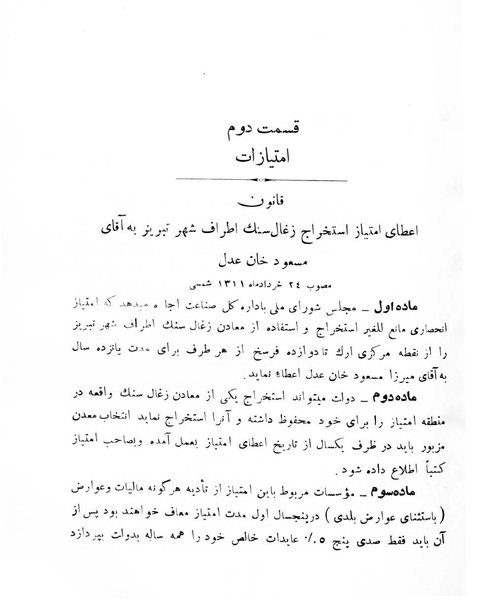 قسمت دوم
امتیازات
قانون
اعطای امتیاز استخراج زغال سنك اطراف شهر تبریز به آقای
مسعود خان عدل
مصوب ٢٤ خردادماه ١٣١١ شمسی
ماده اول – مجلس شورای ملی باداره کل صناعت اجا ه میدهد که امتیاز
انحصاری مانع للغیر استخراج و استفاده از معادن زغال سنك اطراف شهر تبریز
را از نقطه مرکزی ارك تا دوازده فرسخ از هر طرف برای مدت پانزده سال
به آقای میرزا مسعود خان عدل اعطاء نماید.
ماده دوم – دولت میتواند استخراج یکی از معادن زغال سنك واقعه در
منطقه امتیاز را برای خود محفوظ داشته و آنرا استخراج نماید انتخاب معدن
مزبور باید در ظرف یکسال از تاریخ اعطای امتیاز بعمل آمده وبصاحب امتیاز
کتباً اطلاع داده شود.
ماده سوم – مؤسسات مربوط باین امتیاز از تأدیه هرگونه مالیات وعوارض
(باستثنای عوارض بلدی) در پنجسال اول مدت امتیاز معاف خواهند بود پس از
آن باید فقط صدی پنج ٥٪ عایدات خالص خود را همه ساله بدولت بپردازد